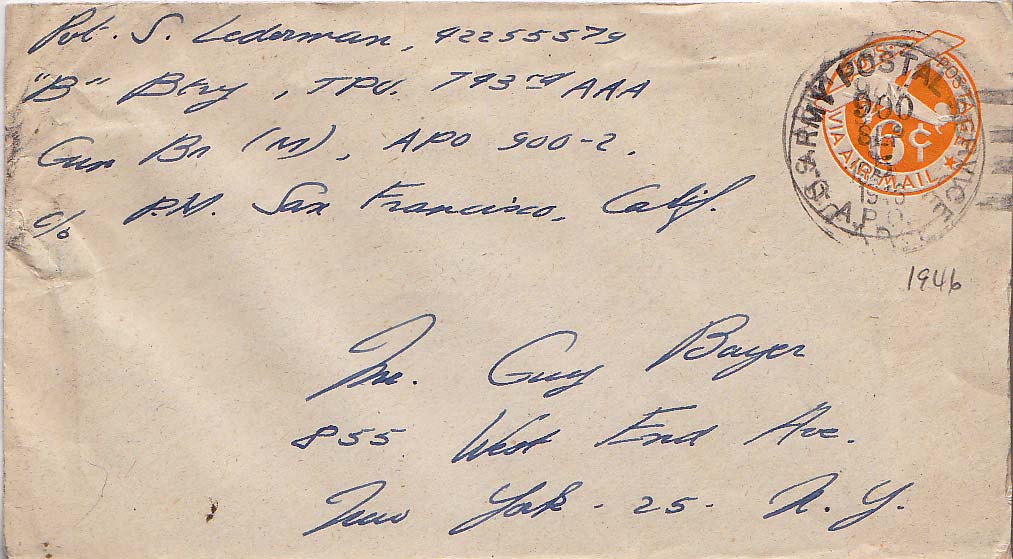 Pvt. S. Lederman, 42255579
"B" Btry, TPU. 793rd AAA
Gun Bn (M), APO 900-2,
c/o P.M. San Francisco, Calif.
ARMY POSTAL
900
SEP
1946
A.P.O.
POSTAGE
VIA AIR MAIL
6¢
1946
Mr. Guy Bayer
855 West End Ave.
New York - 25 - N. Y.